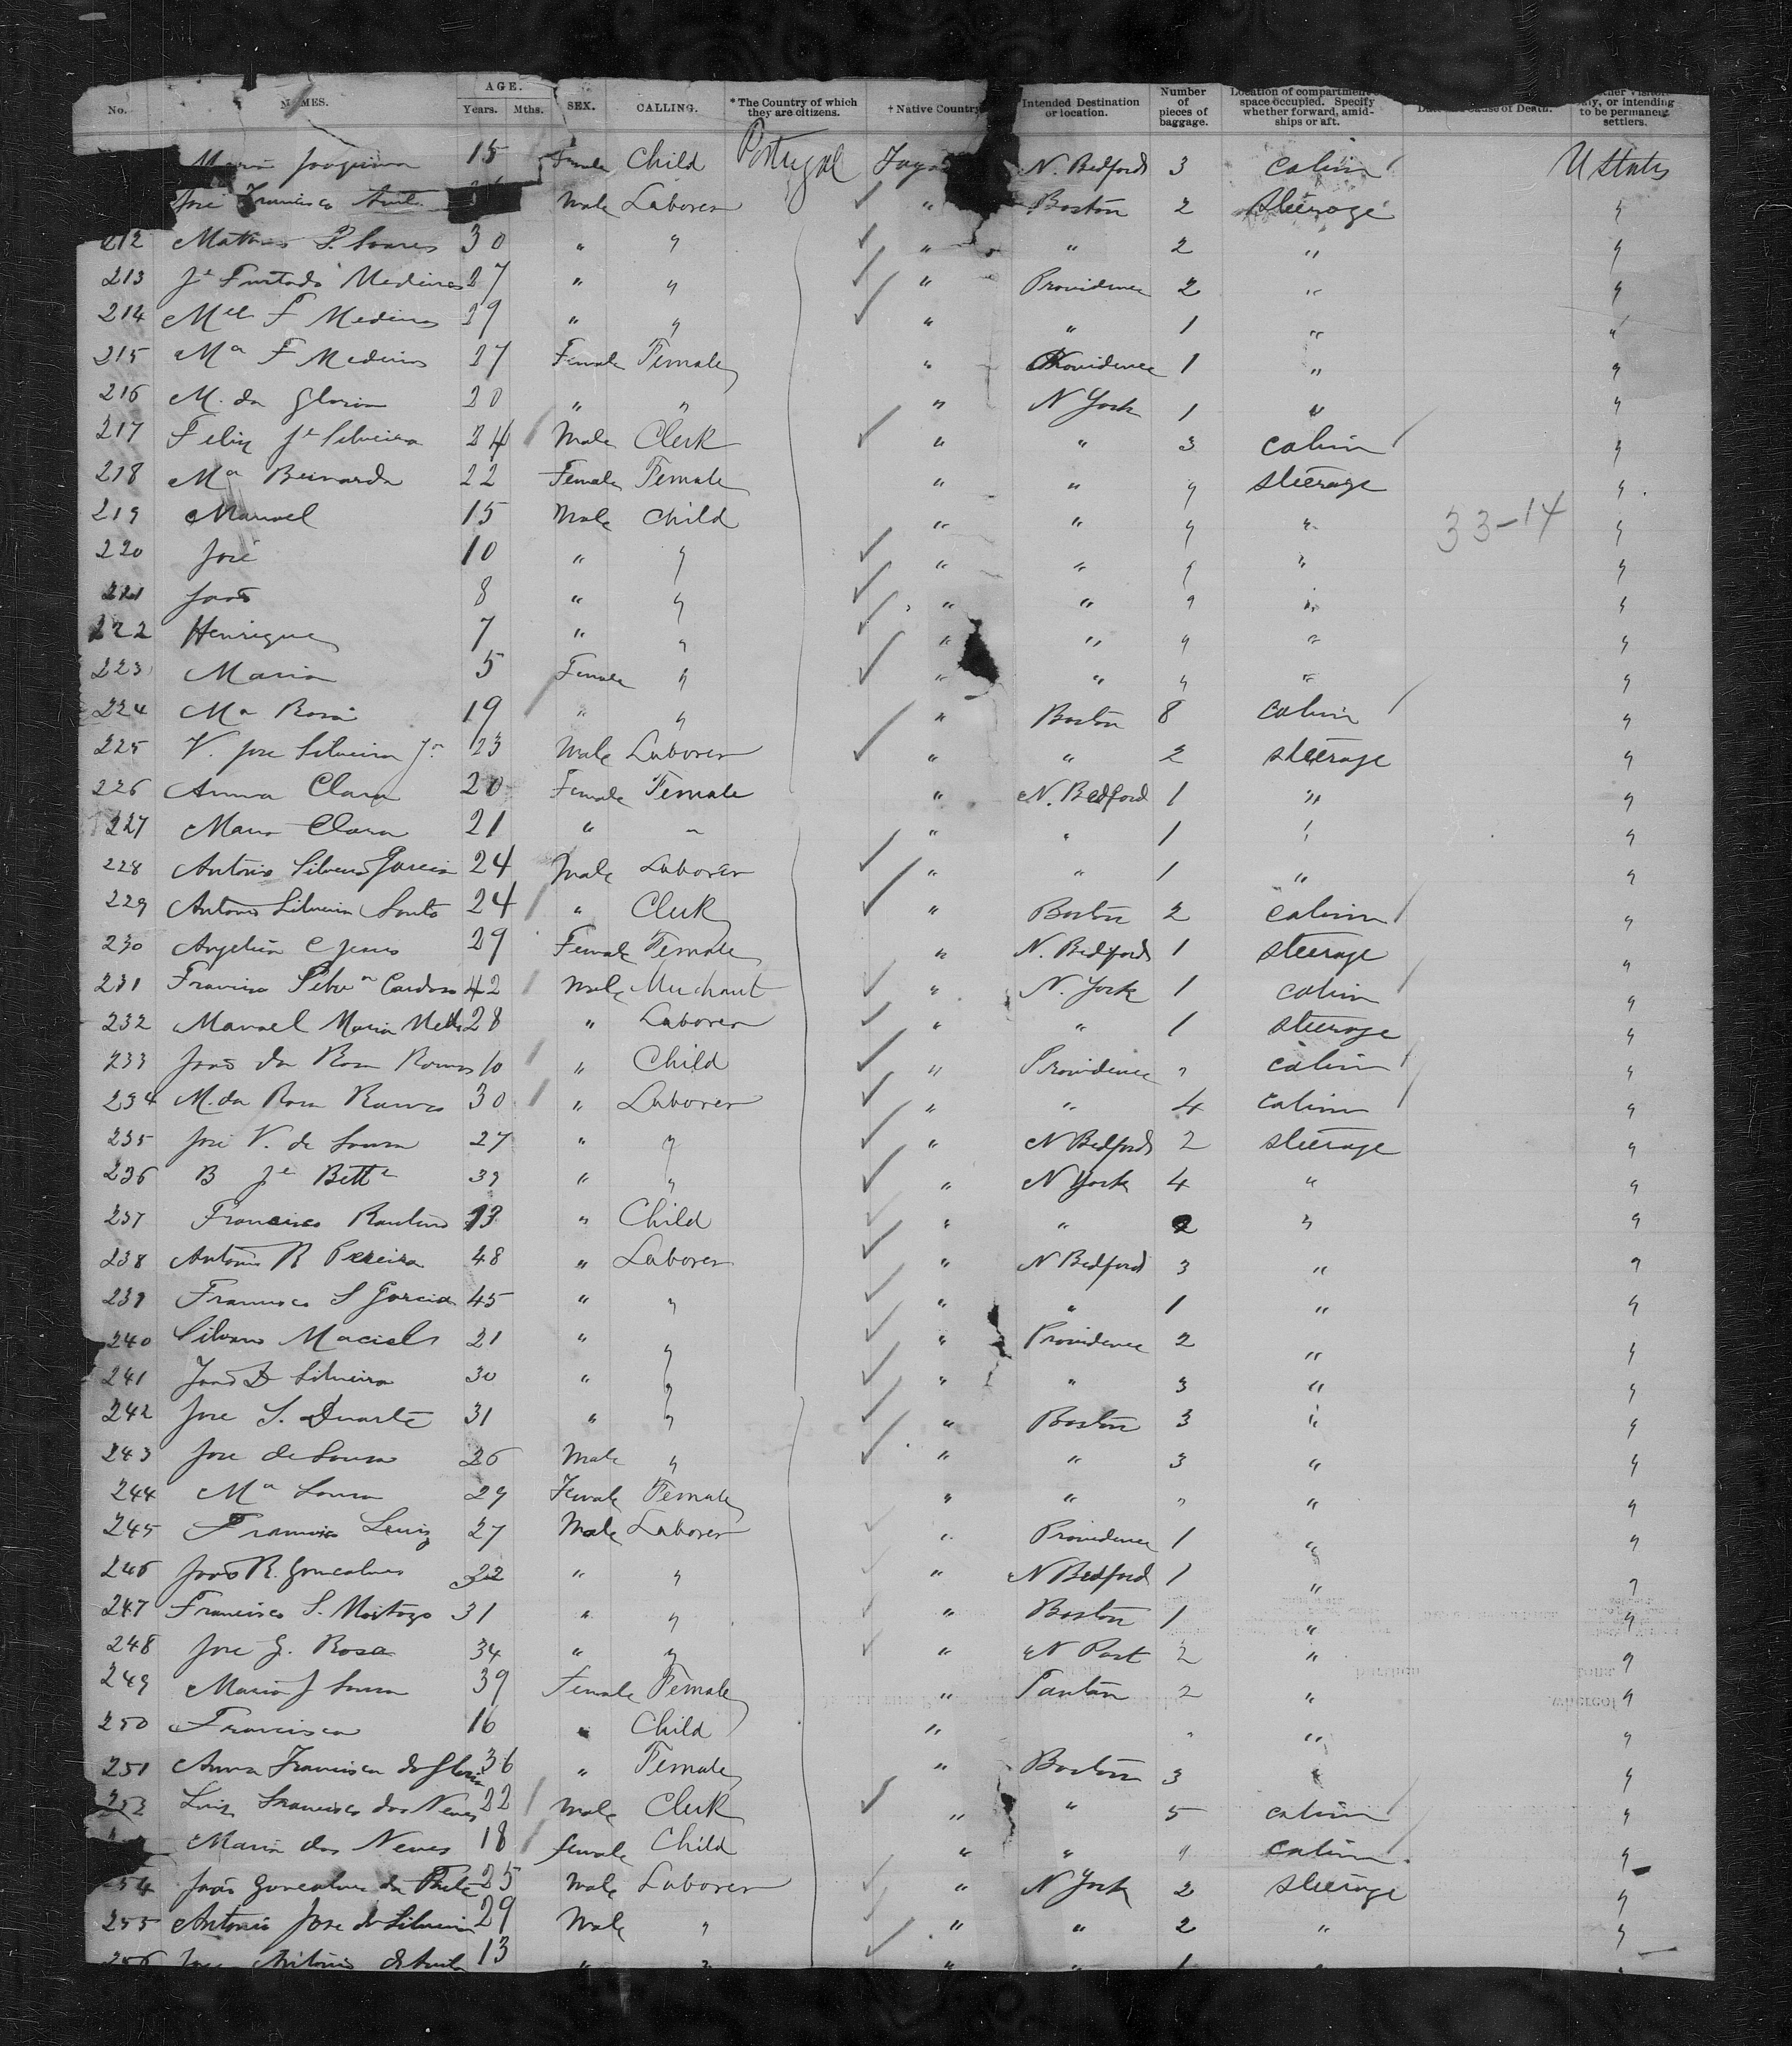 No. NAMES. AGE. Years. Mths. SEX. CALLING. *The Country of which they are citizens. †Native Country Intended Destination or location. Number of pieces of baggage. Location of compartment space occupied. Specify whether forward, amidships or aft. Cause of Death. or intending to be permanent settlers.
Maria Joaquina 15 Female Child Portugal Fay N. Bedford 3 cabin U States
Jose Francisco Male Laborer " Boston 2 steerage "
212 Mathias S. Soares 30 " " " " 2 " "
213 Je Furtado Medeiros 27 " " " Providence 2 " "
214 Mel F Medeiros 29 " " " " 1 " "
215 Ma F Medeiros 27 Female Female " Providence 1 " "
216 M. da Gloria 20 " " " N York 1 " "
217 Felix Je Silveira 24 Male Clerk " " 3 cabin "
218 Ma Bernarda 22 Female Female " " " steerage "
219 Manoel 15 Male Child " " " " 33-14 "
220 José 10 " " " " " " "
221 João 8 " " " " " " "
222 Henrique 7 " " " " " " "
223 Maria 5 Female " " " " " "
224 Ma Rosa 19 " " " Boston 8 cabin "
225 V. Jose Silveira Jr 23 Male Laborer " " 2 steerage "
226 Anna Clara 20 Female Female " N. Bedford 1 " "
227 Maria Clara 21 " " " " 1 " "
228 Antonio Silveira Garcia 24 Male Laborer " " 1 " "
229 Antonio Silveira Souto 24 " Clerk " Boston 2 cabin "
230 Angelina C Jesus 29 Female Female " N. Bedford 1 steerage "
231 Francisco Silva Cardoso 42 Male Merchant " N. York 1 cabin "
232 Manoel Maria Mello 28 " Laborer " " 1 steerage "
233 João da Rosa Ramos 10 " Child " Providence " cabin "
234 M. da Rosa Ramos 30 " Laborer " " 4 cabin "
235 Jose V. de Sousa 27 " " " N Bedford 2 steerage "
236 B Je Bett 39 " " " N York 4 " "
237 Francisco 13 " Child " " 2 " "
238 Antonio R Pereira 48 " Laborer " N Bedford 3 " "
239 Francisco S Garcia 45 " " " " 1 " "
240 Silvano Maciel 21 " " " Providence 2 " "
241 João D Silveira 30 " " " " 3 " "
242 Jose S. Duarte 31 " " " Boston 3 " "
243 Jose de Sousa 26 Male " " " 3 " "
244 Ma Sousa 29 Female Female " " " " "
245 Francisco Luiz 27 Male Laborer " Providence 1 " "
246 João R. Goncalves 22 " " " N Bedford 1 " "
247 Francisco S. 31 " " " Boston 1 " "
248 Jose G. Rosa 34 " " " N Port 2 " "
249 Maria J Sousa 39 Female Female " Tanton 2 " "
250 Francisca 16 " Child " " " "
251 Anna Francisca da Gloria 36 " Female " Boston 3 " "
252 Luiz Francisco das Neves 22 Male Clerk " " 5 cabin "
Maria das Neves 18 female Child " " " cabin "
254 João Goncalves da 25 Male Laborer " N York 2 steerage "
255 Antonio Jose da Silveira 29 Male " " " 2 " "
256 Antonio 13 " " " " 1 "